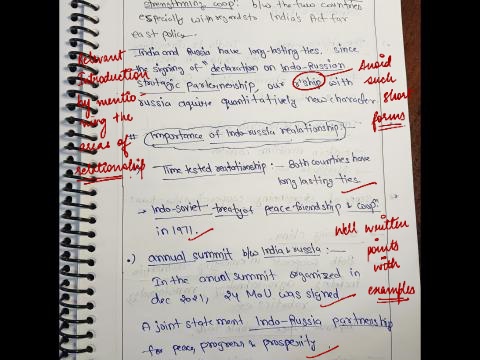 strengthning coop: b/w the two countries
especially with regards to India's Act far
east policy.
India and Russia have long-lasting ties, since
the signing of "declaration on Indo-Russian
strategic partnership, our r'ship with
russia aquire quantitatively new character
Relevant
introduction
by mentio
ning the
areas of
relationship
Avoid
such
short
forms
Importance of Indo-russia realationship:
Time tested realationship :- Both countries have
long lasting ties.
→ Indo-soviet treaty of peace friendship & coopn
in 1971.
annual summit b/w India & russia :-
In the anual summit organized in
dec 2021, 24 MoU was signed
A joint statement Indo-Russia partnership
for peace, progress & prosperity.
Well written
points
with
examples